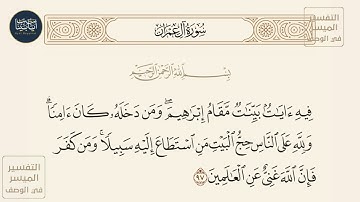 سُورَةُ آلِ عِمْرَان
التفسير
الميسر
في الوصف
بِسْمِ اللَّهِ الرَّحْمَٰنِ الرَّحِيمِ
فِيهِ ءَايَٰتٌۢ بَيِّنَٰتٌ مَّقَامُ إِبْرَٰهِيمَۖ وَمَن دَخَلَهُۥ كَانَ ءَامِنٗاۗ
وَلِلَّهِ عَلَى ٱلنَّاسِ حِجُّ ٱلْبَيْتِ مَنِ ٱسْتَطَاعَ إِلَيْهِ سَبِيلٗاۚ وَمَن كَفَرَ
فَإِنَّ ٱللَّهَ غَنِيٌّ عَنِ ٱلْعَٰلَمِينَ ٩٧
التفسير
الميسر
في الوصف